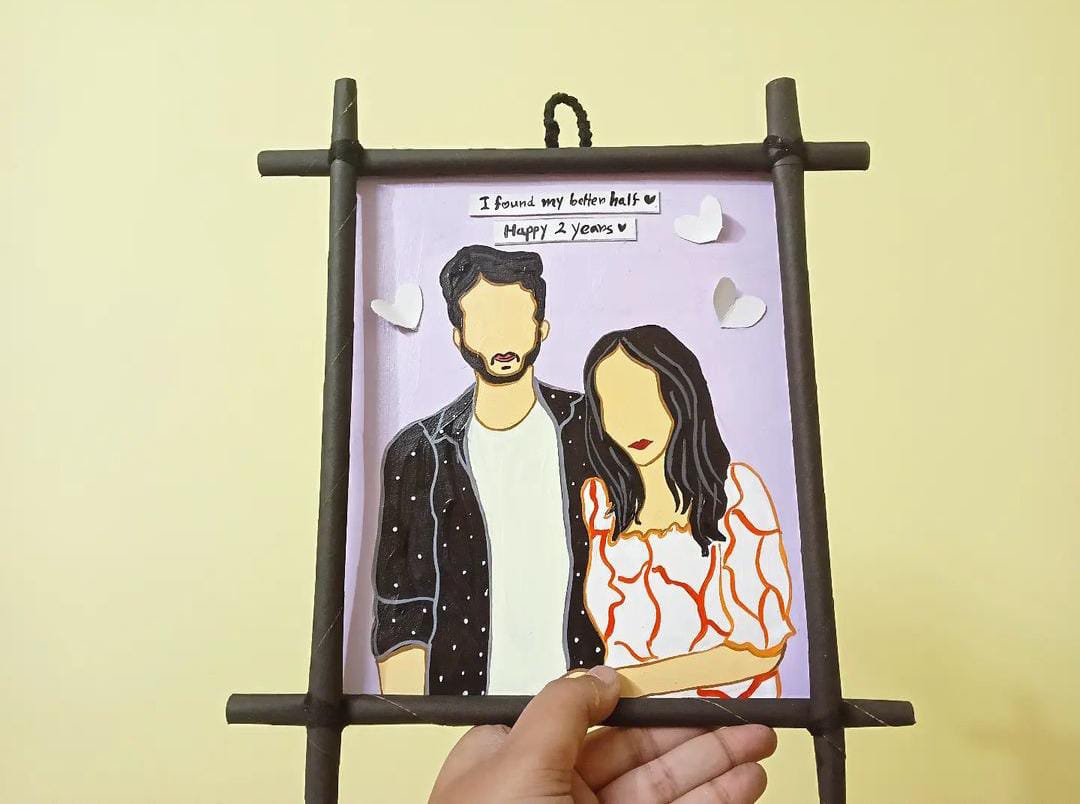 I found my better half ♥
Happy 2 years ♥